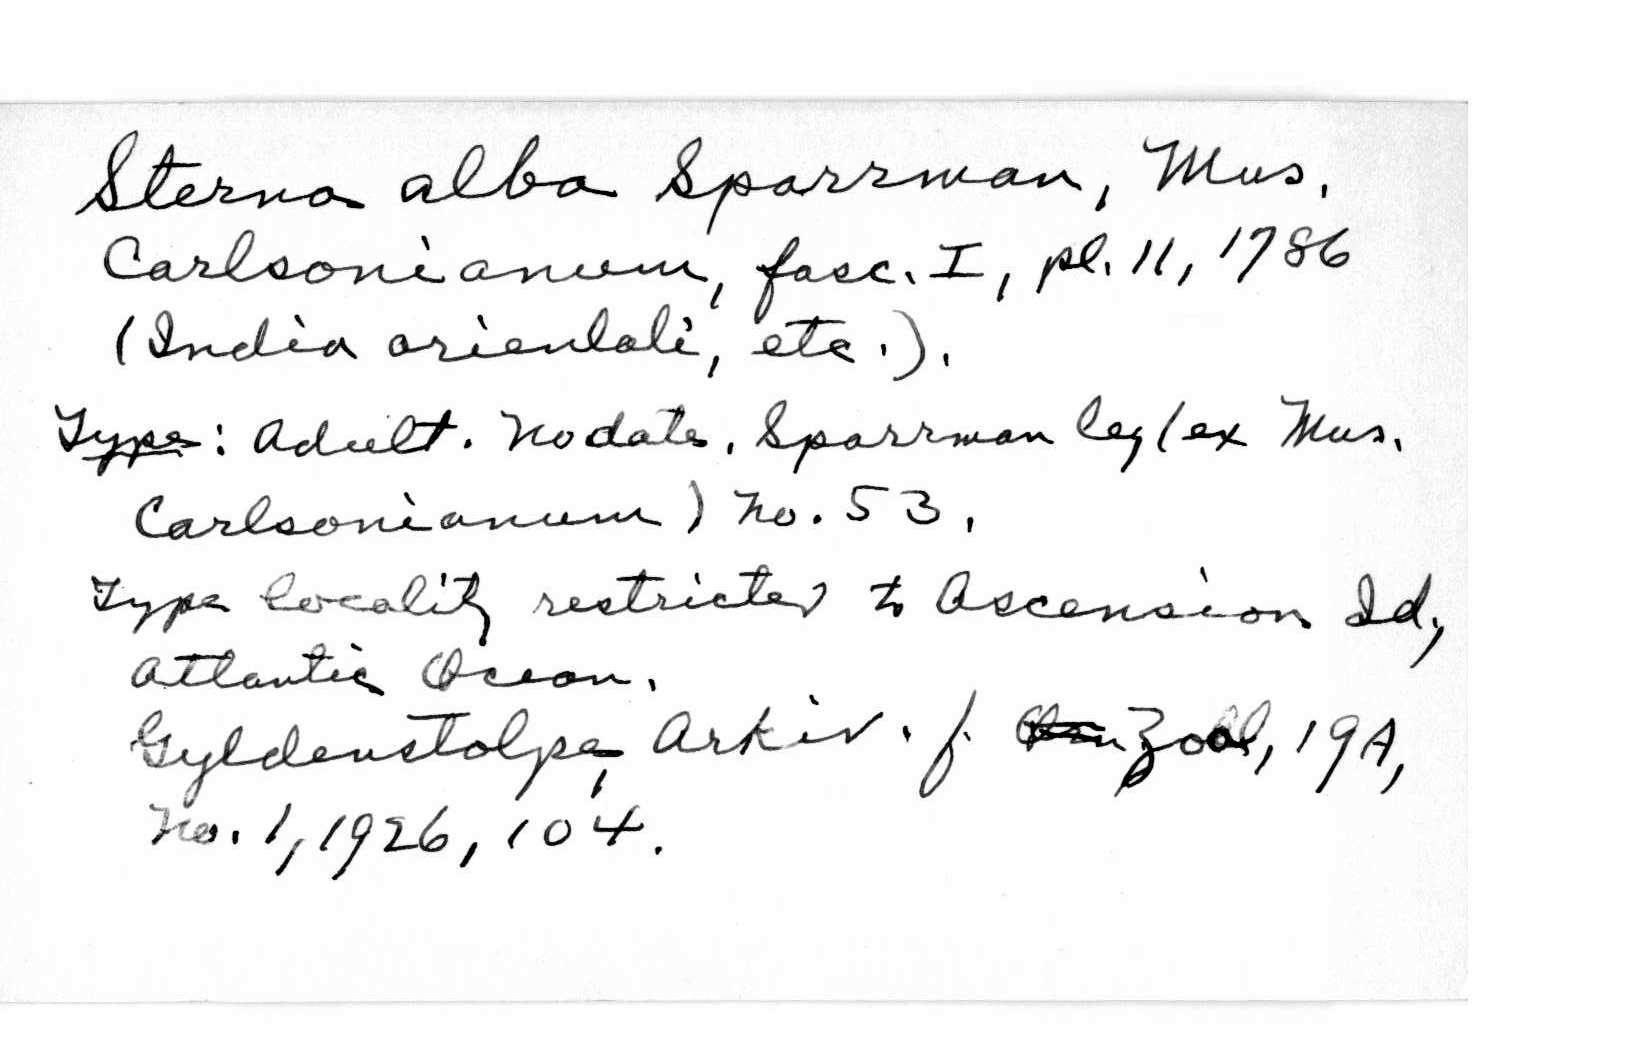 Sterna alba Sparrman, Mus.
Carlsonianum, fasc. I, pl. 11, 1786
(India orientali, etc.).
Type: Adult. No date. Sparrman leg (ex Mus.
Carlsonianum) No. 53.
Type locality restricted to Ascension Id.,
Atlantic Ocean.
Gyldenstolpe, Arkiv. f. Zool, 19A,
No. 1, 1926, 104.